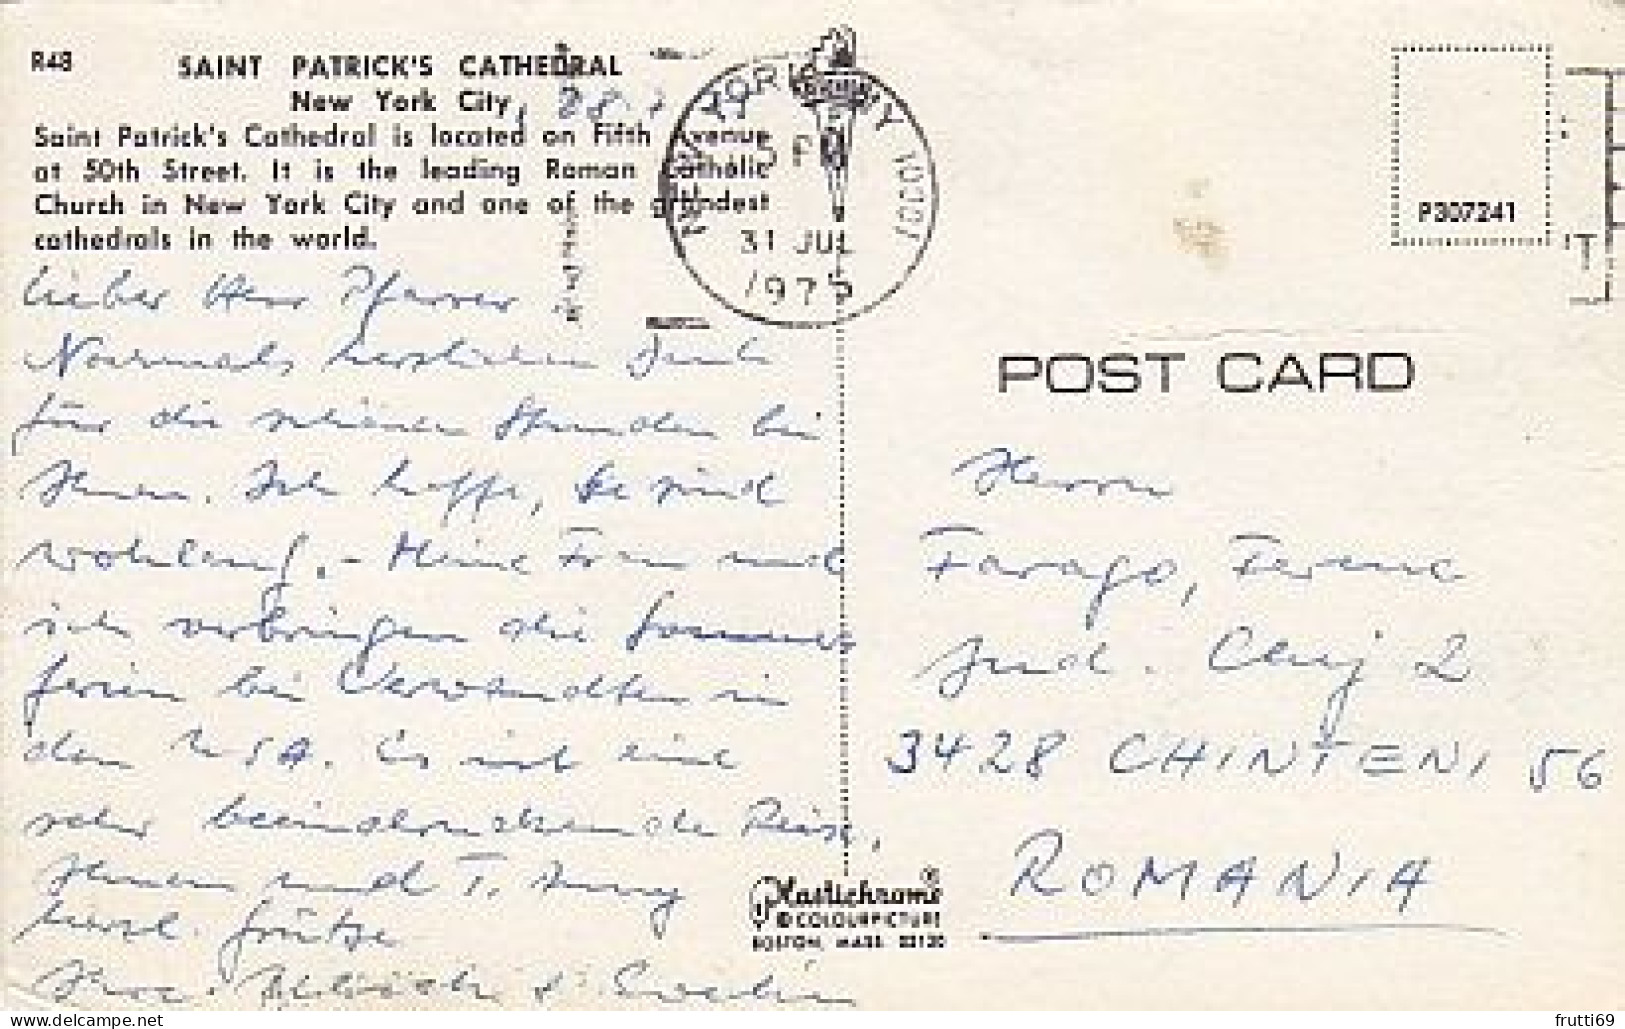 R48 SAINT PATRICK'S CATHEDRAL
New York City,
Saint Patrick's Cathedral is located on Fifth Avenue
at 50th Street. It is the leading Roman Catholic
Church in New York City and one of the grandest
cathedrals in the world.
NEW YORK, NY 10001
31 JUL
1975
P307241
Lieber Herr Pfarrer
Nochmals herzlichen Dank
für die schönen Stunden bei
Ihnen. Ich hoffe, Sie sind
wohlauf. - Meine Frau und
ich verbringen die Sommer
ferien bei Verwandten in
den USA. Es ist eine
sehr beeindruckende Reise,
Ihnen und
herzl. Grüße
Ihre
POST CARD
Herrn
Farago, Ferenc
Jud. Cluj 2
3428 CHINTENI 56
ROMANIA
Plastichrome ®
© COLOURPICTURE
BOSTON, MASS. 02130
frutti69